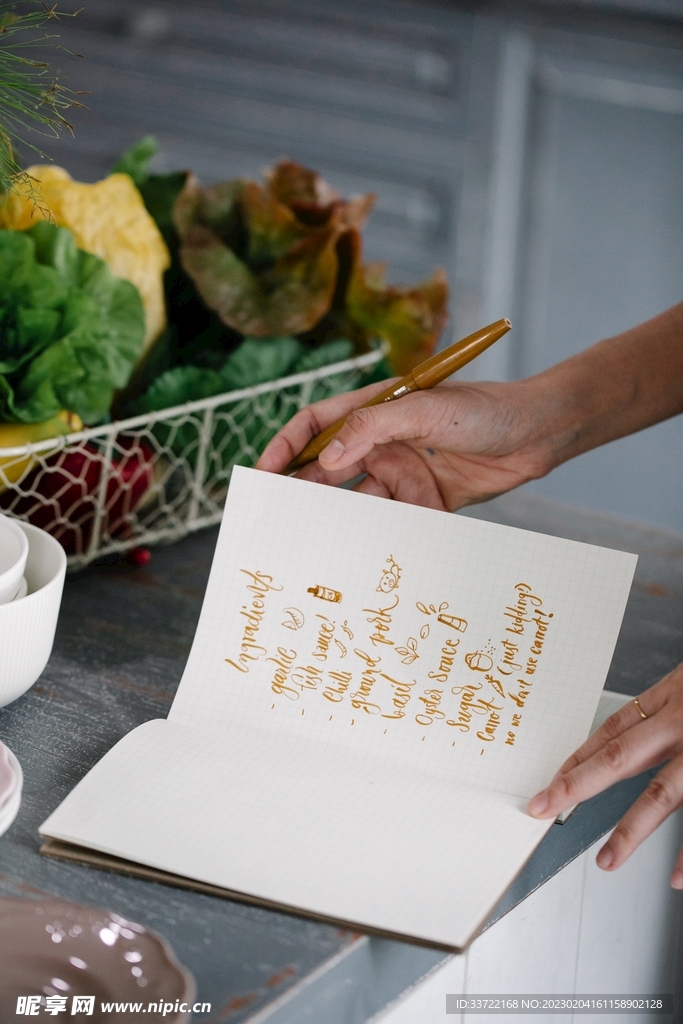 Ingredients
- garlic
- fish sauce!
- Chilli
- ground pork
- basil
- Oyster Sauce
- Sugar
- Carrot (just kidding!)
no we don't use carrot!
昵享网 www.nipic.cn
ID:33722168 NO:20230204161158902128